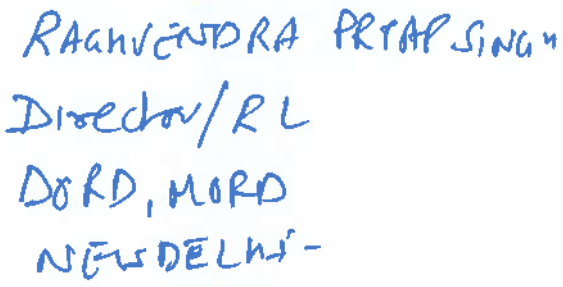 RAGHVENDRA PRTAP SINGH
Director/RL
DoRD, MORD
NEW DELHI-